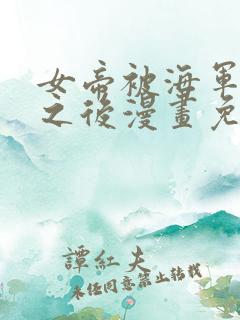 女帝被海軍
之後漫畫免
譚紅夫
未任同意禁止轉載